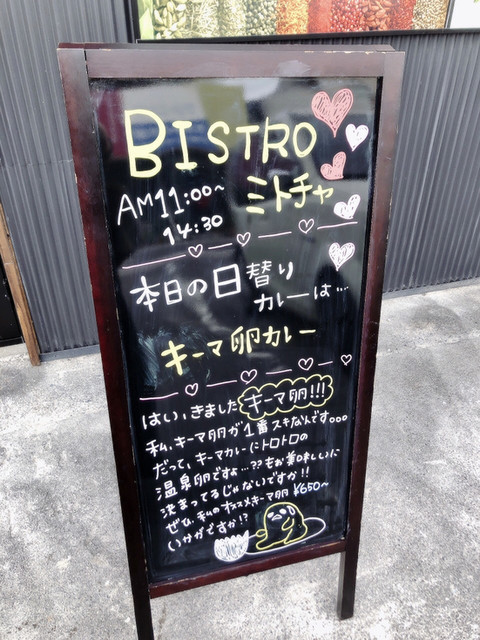 BISTRO
ミトチャ
AM11:00~
14:30
本日の日替り
カレーは…
キーマ卵カレー
はい、きました キーマ卵!!!
私、キーマ卵が1番スキなんです。。。
だって、キーマカレーにトロトロの
温泉卵ですよ…??もぉ美味しいに
決まってるじゃないですか!!
ぜひ、私のオススメキーマ卵 ¥650~
いかがですか!?